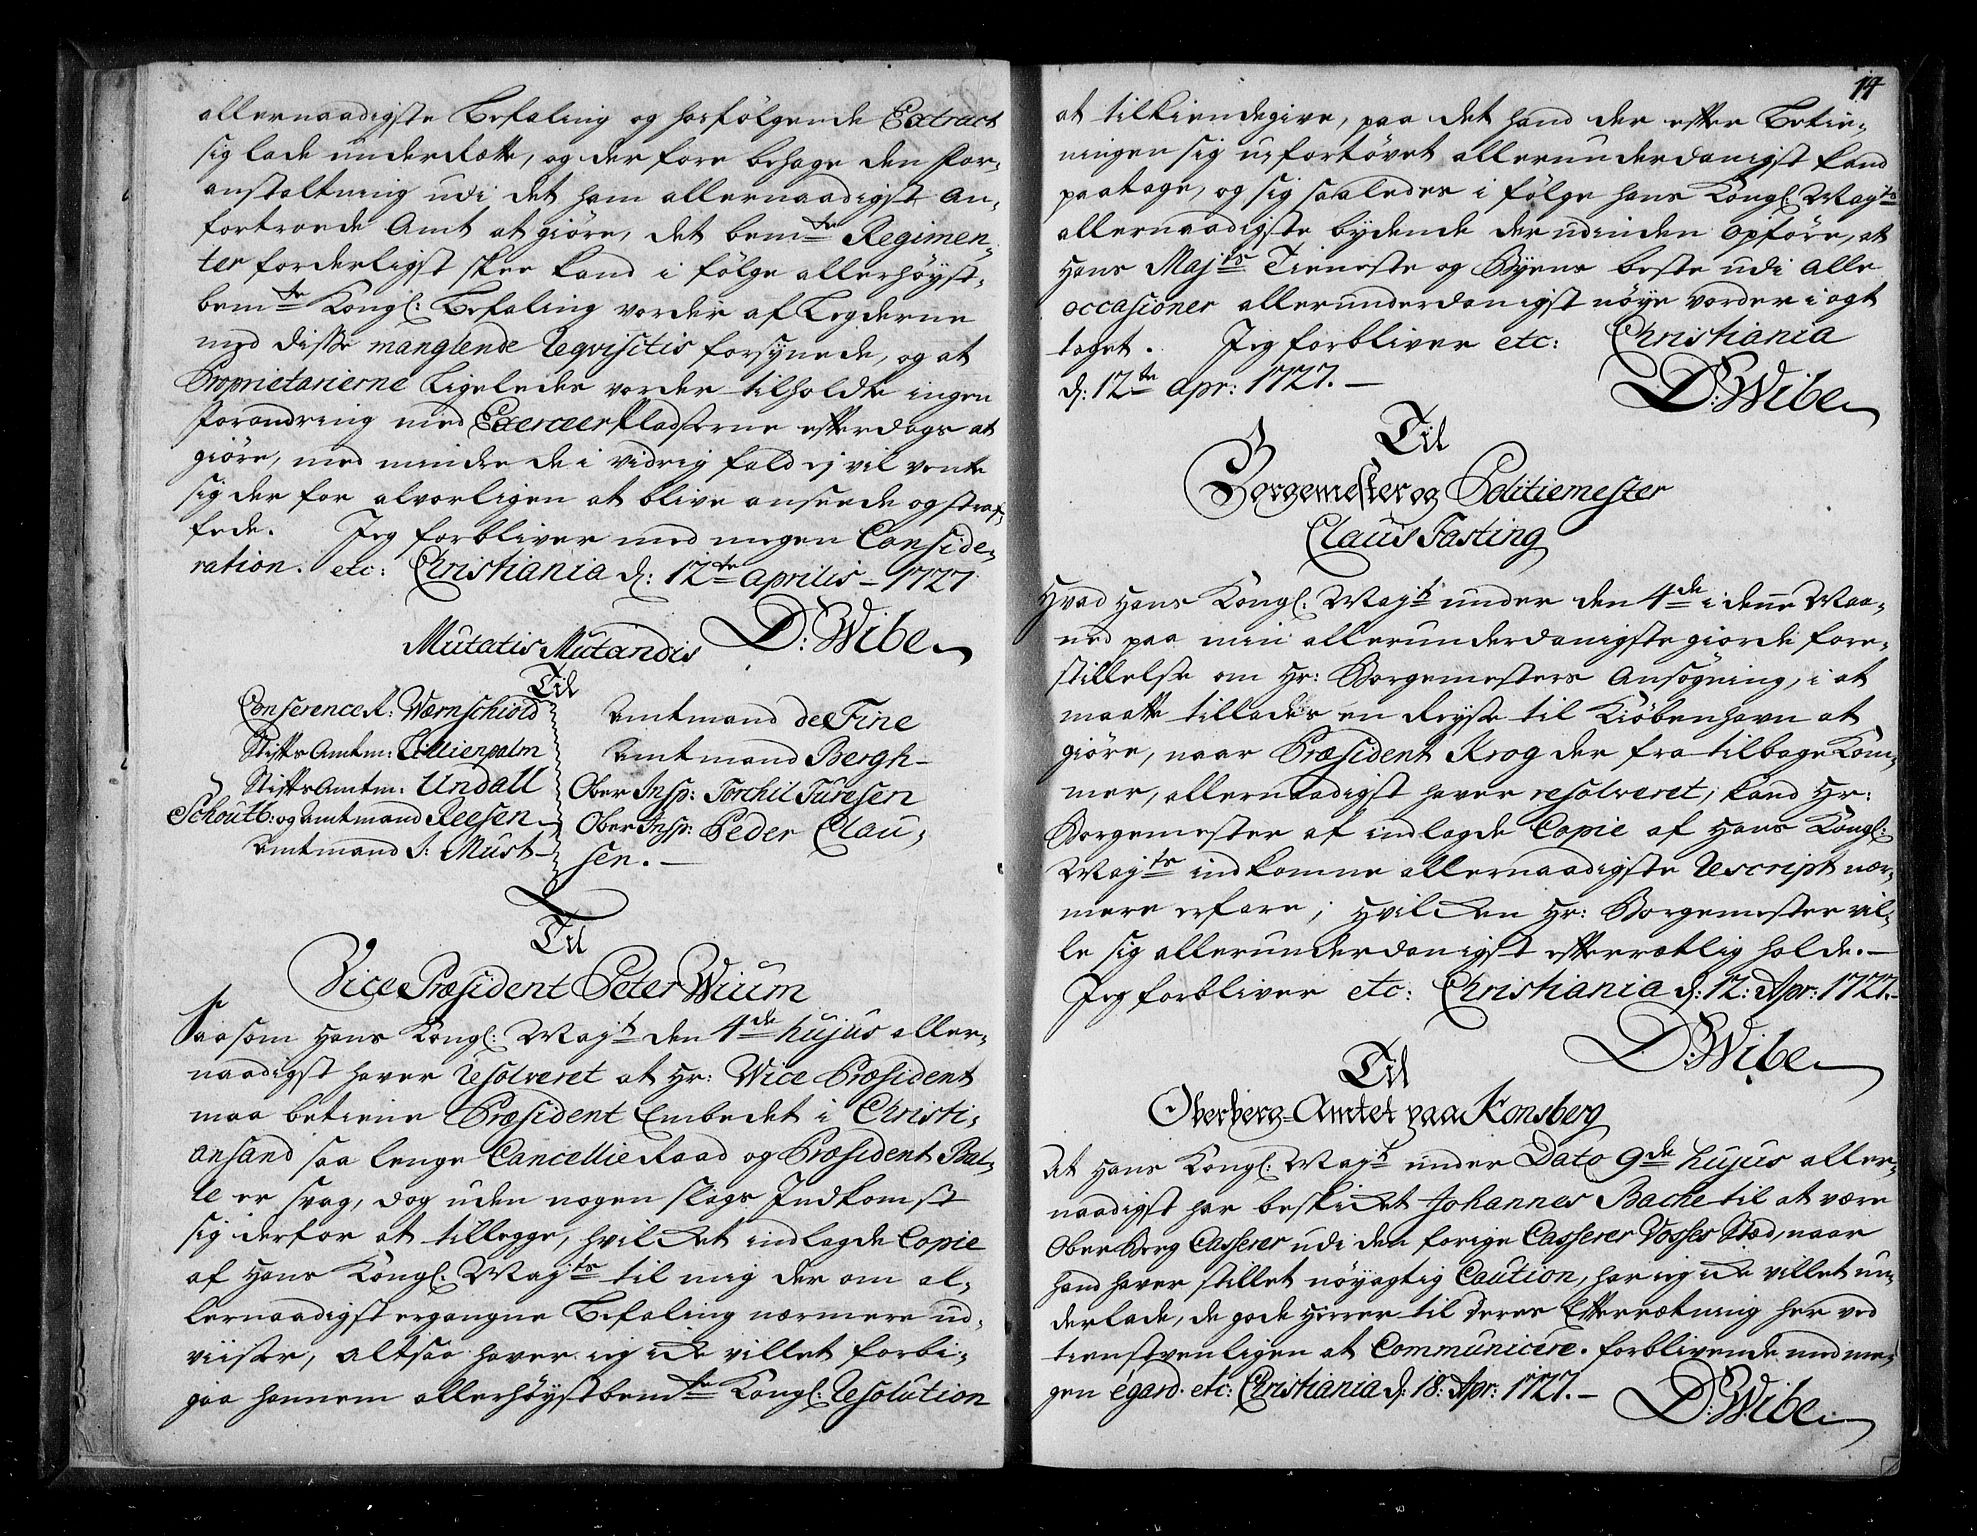 allernaadigste Befaling og hosfølgende Extract
sig lade underrette, og der fore behage den For-
anstaltning udi det ham allernaadigst An-
fortroede Amt at giøre, det bemte Regimen-
ter forderligst skee kand i følge allerhøyst-
bemte Kongl: Befaling vorder af Legderne
med disse manglende Reqvisitis forsynede, og at
Proprietarierne ligeledes vorder tilholdte ingen
Forandring med Exerceer Pladserne efterdags at
giøre, med mindre de i vidrig fald ej vil vente
sig der for alvorligen at blive anseede og straf-
fede. Jeg forbliver med megen Conside-
ration. etc: Christiania d: 12te Aprilis - 1727
D: Wibe
Mutatis Mutandis
Til
Conference R: Wærnschiold
Stifts Amtm: Lillienpalm
Stifts Amtm: Undall
Schoutb: og Amtmand Reesen
Amtmand S: Must
Amtmand de Fine
Amtmand Bergh
Ober Insp: Torchil Turesen
Ober Insp: Peder Clau-
sen.
Til
Vice Præsident Peter Wium
Saasom Hans Kongl: Mayt den 4de hujus aller-
naadigst haver Resolveret at Hr: Vice Præsident
maa betiene Præsident Embedet i Christi-
ansand saa lenge Cancellie Raad og Præsident Bal-
le er svag, dog uden nogen slags Indkomst
sig derfor at tillegge, hvilcket indlagde Copie
af Hans Kongl: Mayts til mig der om al-
lernaadigst ergangne Befaling nærmere ud-
viiser, altsaa haver ieg icke villet forbi-
gaa hannem allerhøystbemte Kongl: Resolution
14
at tilkiendegive, paa det hand der efter Betie-
ningen sig ufortøvet allerunderdanigst kand
paatage, og sig saaledes i følge Hans Kongl: Mayts
allernaadigste bydende derudinden opføre, at
Hans Majts Tieneste og Byens beste udi alle
occasioner allerunderdanigst nøye vorder i agt
taget. Jeg forbliver etc: Christiania
d: 12te Apr: 1727.
D: Wibe
Til
Borgemester og Politiemester
Claus Fasting
Hvad Hans Kongl: Mayt under den 4de i denne Maa-
ned paa min allerunderdanigste giorde Fore-
stillelse om Hr: Borgemesters Ansøgning, i at
maatte tillades en Reyse til Kiøbenhavn at
giøre, naar Præsident Krog der fra tilbage kom-
mer, allernaadigst haver resolveret, kand Hr:
Borgemester af indlagde Copie af Hans Kongl:
Mayts indkomne allernaadigste Rescript nær-
mere erfare; Hvilcken Hr: Borgemester vil-
le sig allerunderdanigst efterrætlig holde.
Jeg forbliver etc: Christiania d: 12: Apr: 1727.
D: Wibe
Til
Oberberg-Amtet paa Konsberg
At Hans Kongl: Mayt under Dato 9de hujus aller-
naadigst har beskicket Johannes Bache til at være
Ober Berg Casserer udi den forige Casserer Vosses Stæd, naar
hand haver stillet nøyagtig Caution, har ieg icke villet un-
derlade, de gode Herrer til deres Efterrætning her ved
tienstvenligen at Communicere. forblivende med me-
gen egard. etc: Christiania d: 18: Apr: 1727.
D: Wibe